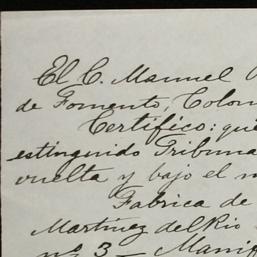 El C. Manuel
de Fomento, Colon
Certifico: que
estinguido Tribuna
vuelta y bajo el n
Fabrica de
Martinez del Rio
nº 3 — Manif